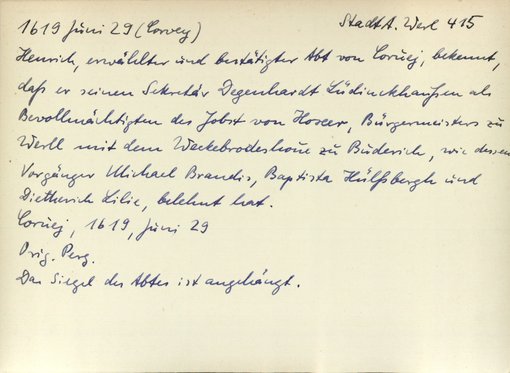 1619 Juni 29 (Corvey) Stadt A. Werl 415
Henrich, erwählter und bestätigter Abt von Coruej, bekennt,
daß er seinen Sekretär Degenhardt Lüdinckhaußen als
Bevollmächtigten des Jobst von Hoseer, Bürgermeisters zu
Werll mit dem Weckebrodeshoue zu Büderich, wie dessen
Vorgänger Michael Brandis, Baptista Hülßbergh und
Dietherich Lilie, belehnt hat.
Coruej, 1619, Juni 29
Orig. Perg.
Das Siegel des Abtes ist angehängt.